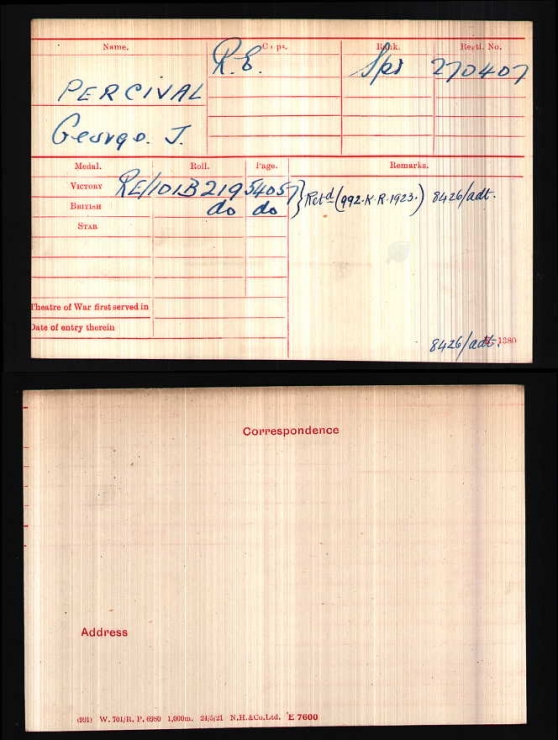 Name. Corps. Rank. Regtl. No.
PERCIVAL R.E. Spr 270407
George. J.
Medal. Roll. Page. Remarks.
VICTORY RE/101B219 54057 } Retd (992.K.R.1923.) 8426/adt.
BRITISH do do
STAR
Theatre of War first served in
Date of entry therein
8426/adt. 1380
Correspondence
Address
W. 701/R. P. 6980 1,000m. 24/5/21 N.H.&Co,Ltd. E 7600